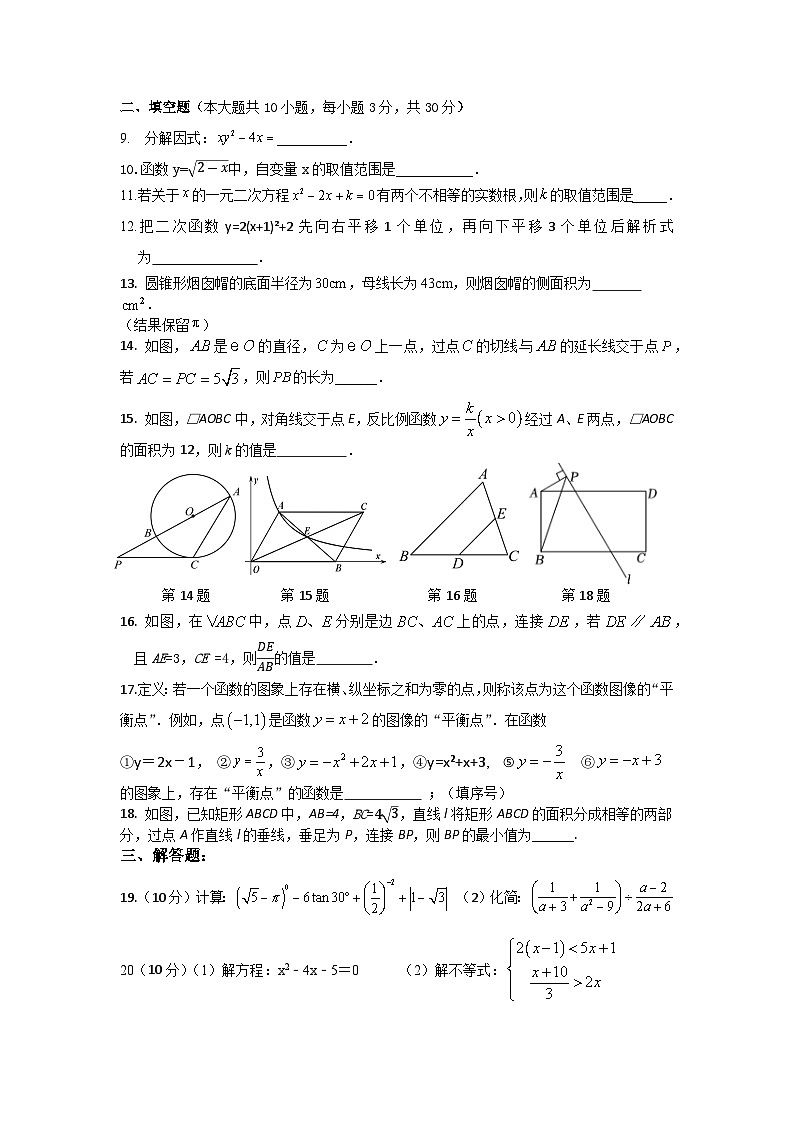 二、填空题(本大题共10小题,每小题3分,共30分)
9. 分解因式:xy²－4x＝__________.
10.函数y=√(2－x)中,自变量x的取值范围是___________.
11.若关于x的一元二次方程x²－2x＋k＝0有两个不相等的实数根,则k的取值范围是_____.
12.把二次函数y=2(x+1)²+2先向右平移1个单位,再向下平移3个单位后解析式
为_______________.
13. 圆锥形烟囱帽的底面半径为30cm,母线长为43cm,则烟囱帽的侧面积为_______
cm².
(结果保留π)
14. 如图,AB是eO的直径,C为eO上一点,过点C的切线与AB的延长线交于点P,
若AC＝PC＝5√3,则PB的长为______.
15. 如图,□AOBC中,对角线交于点E,反比例函数y＝k/x(x＞0)经过A、E两点,□AOBC
的面积为12,则k的值是__________.
A O B P C
y A C E O B x
A E B D C
A P D B C l
第14题 第15题 第16题 第18题
16. 如图,在VABC中,点D、E分别是边BC、AC上的点,连接DE,若DE∥AB,
且AE=3,CE=4,则DE/AB的值是________.
17.定义:若一个函数的图象上存在横、纵坐标之和为零的点,则称该点为这个函数图像的“平
衡点”.例如,点(－1,1)是函数y＝x＋2的图像的“平衡点”.在函数
①y＝2x－1, ②y＝3/x,③y＝－x²＋2x＋1,④y=x²+x+3, ⑤y＝－3/x ⑥y＝－x＋3
的图象上,存在“平衡点”的函数是___________ ;(填序号)
18. 如图,已知矩形ABCD中,AB=4,BC=4√3,直线l将矩形ABCD的面积分成相等的两部
分,过点A作直线l的垂线,垂足为P,连接BP,则BP的最小值为______.
三、解答题:
19.(10分)计算:(√5－π)⁰－6tan30°＋(1/2)⁻²＋|1－√3| (2)化简:(1/(a＋3)＋1/(a²－9))÷(a－2)/(2a＋6)
20(10分)(1)解方程:x²﹣4x﹣5＝0 (2)解不等式:{2(x－1)＜5x＋1
(x＋10)/3＞2x